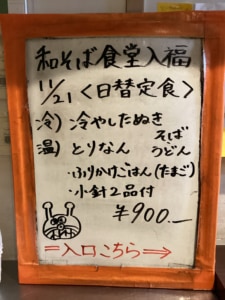 和そば食堂入福
11/21 <日替定食>
冷) 冷やしたぬき そば
温) とりなん うどん
・ふりかけごはん(たまご)
・小針2品付
¥900.—
=入口こちら⇒